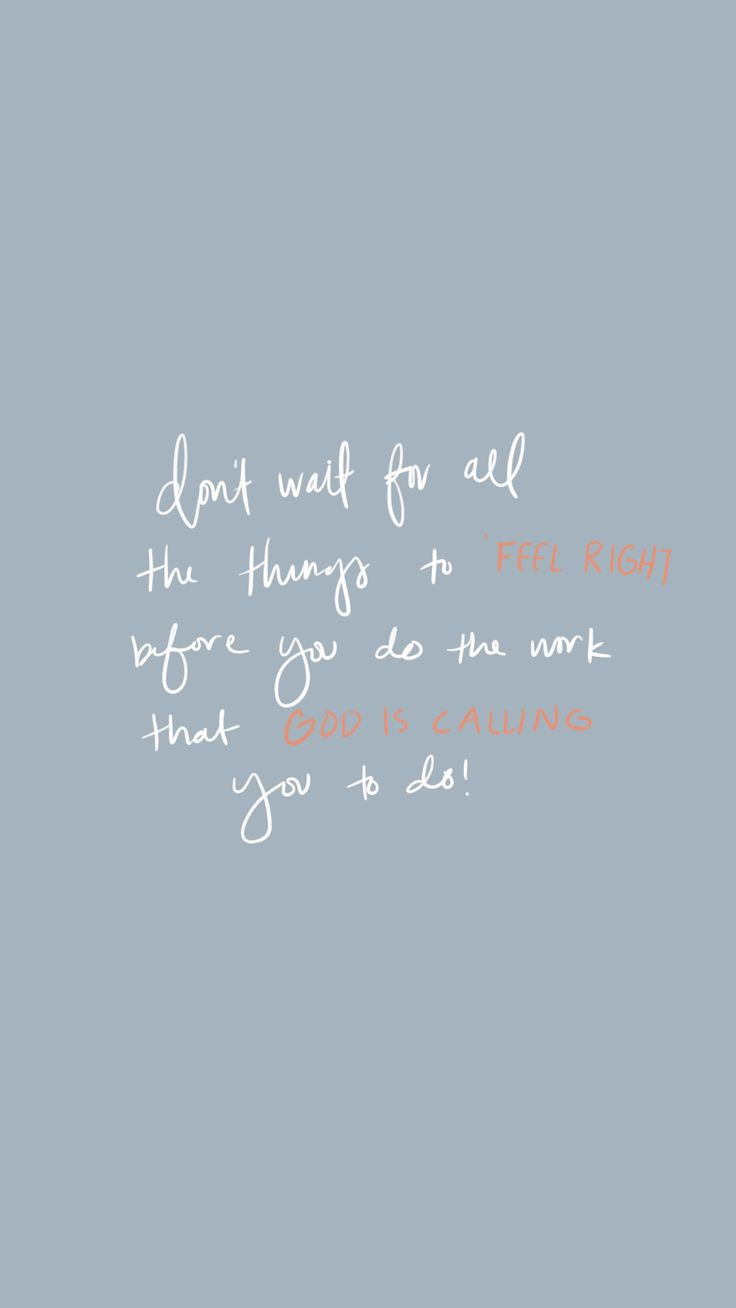 don't wait for all
the things to 'FEEL RIGHT
before you do the work
that GOD IS CALLING
you to do!